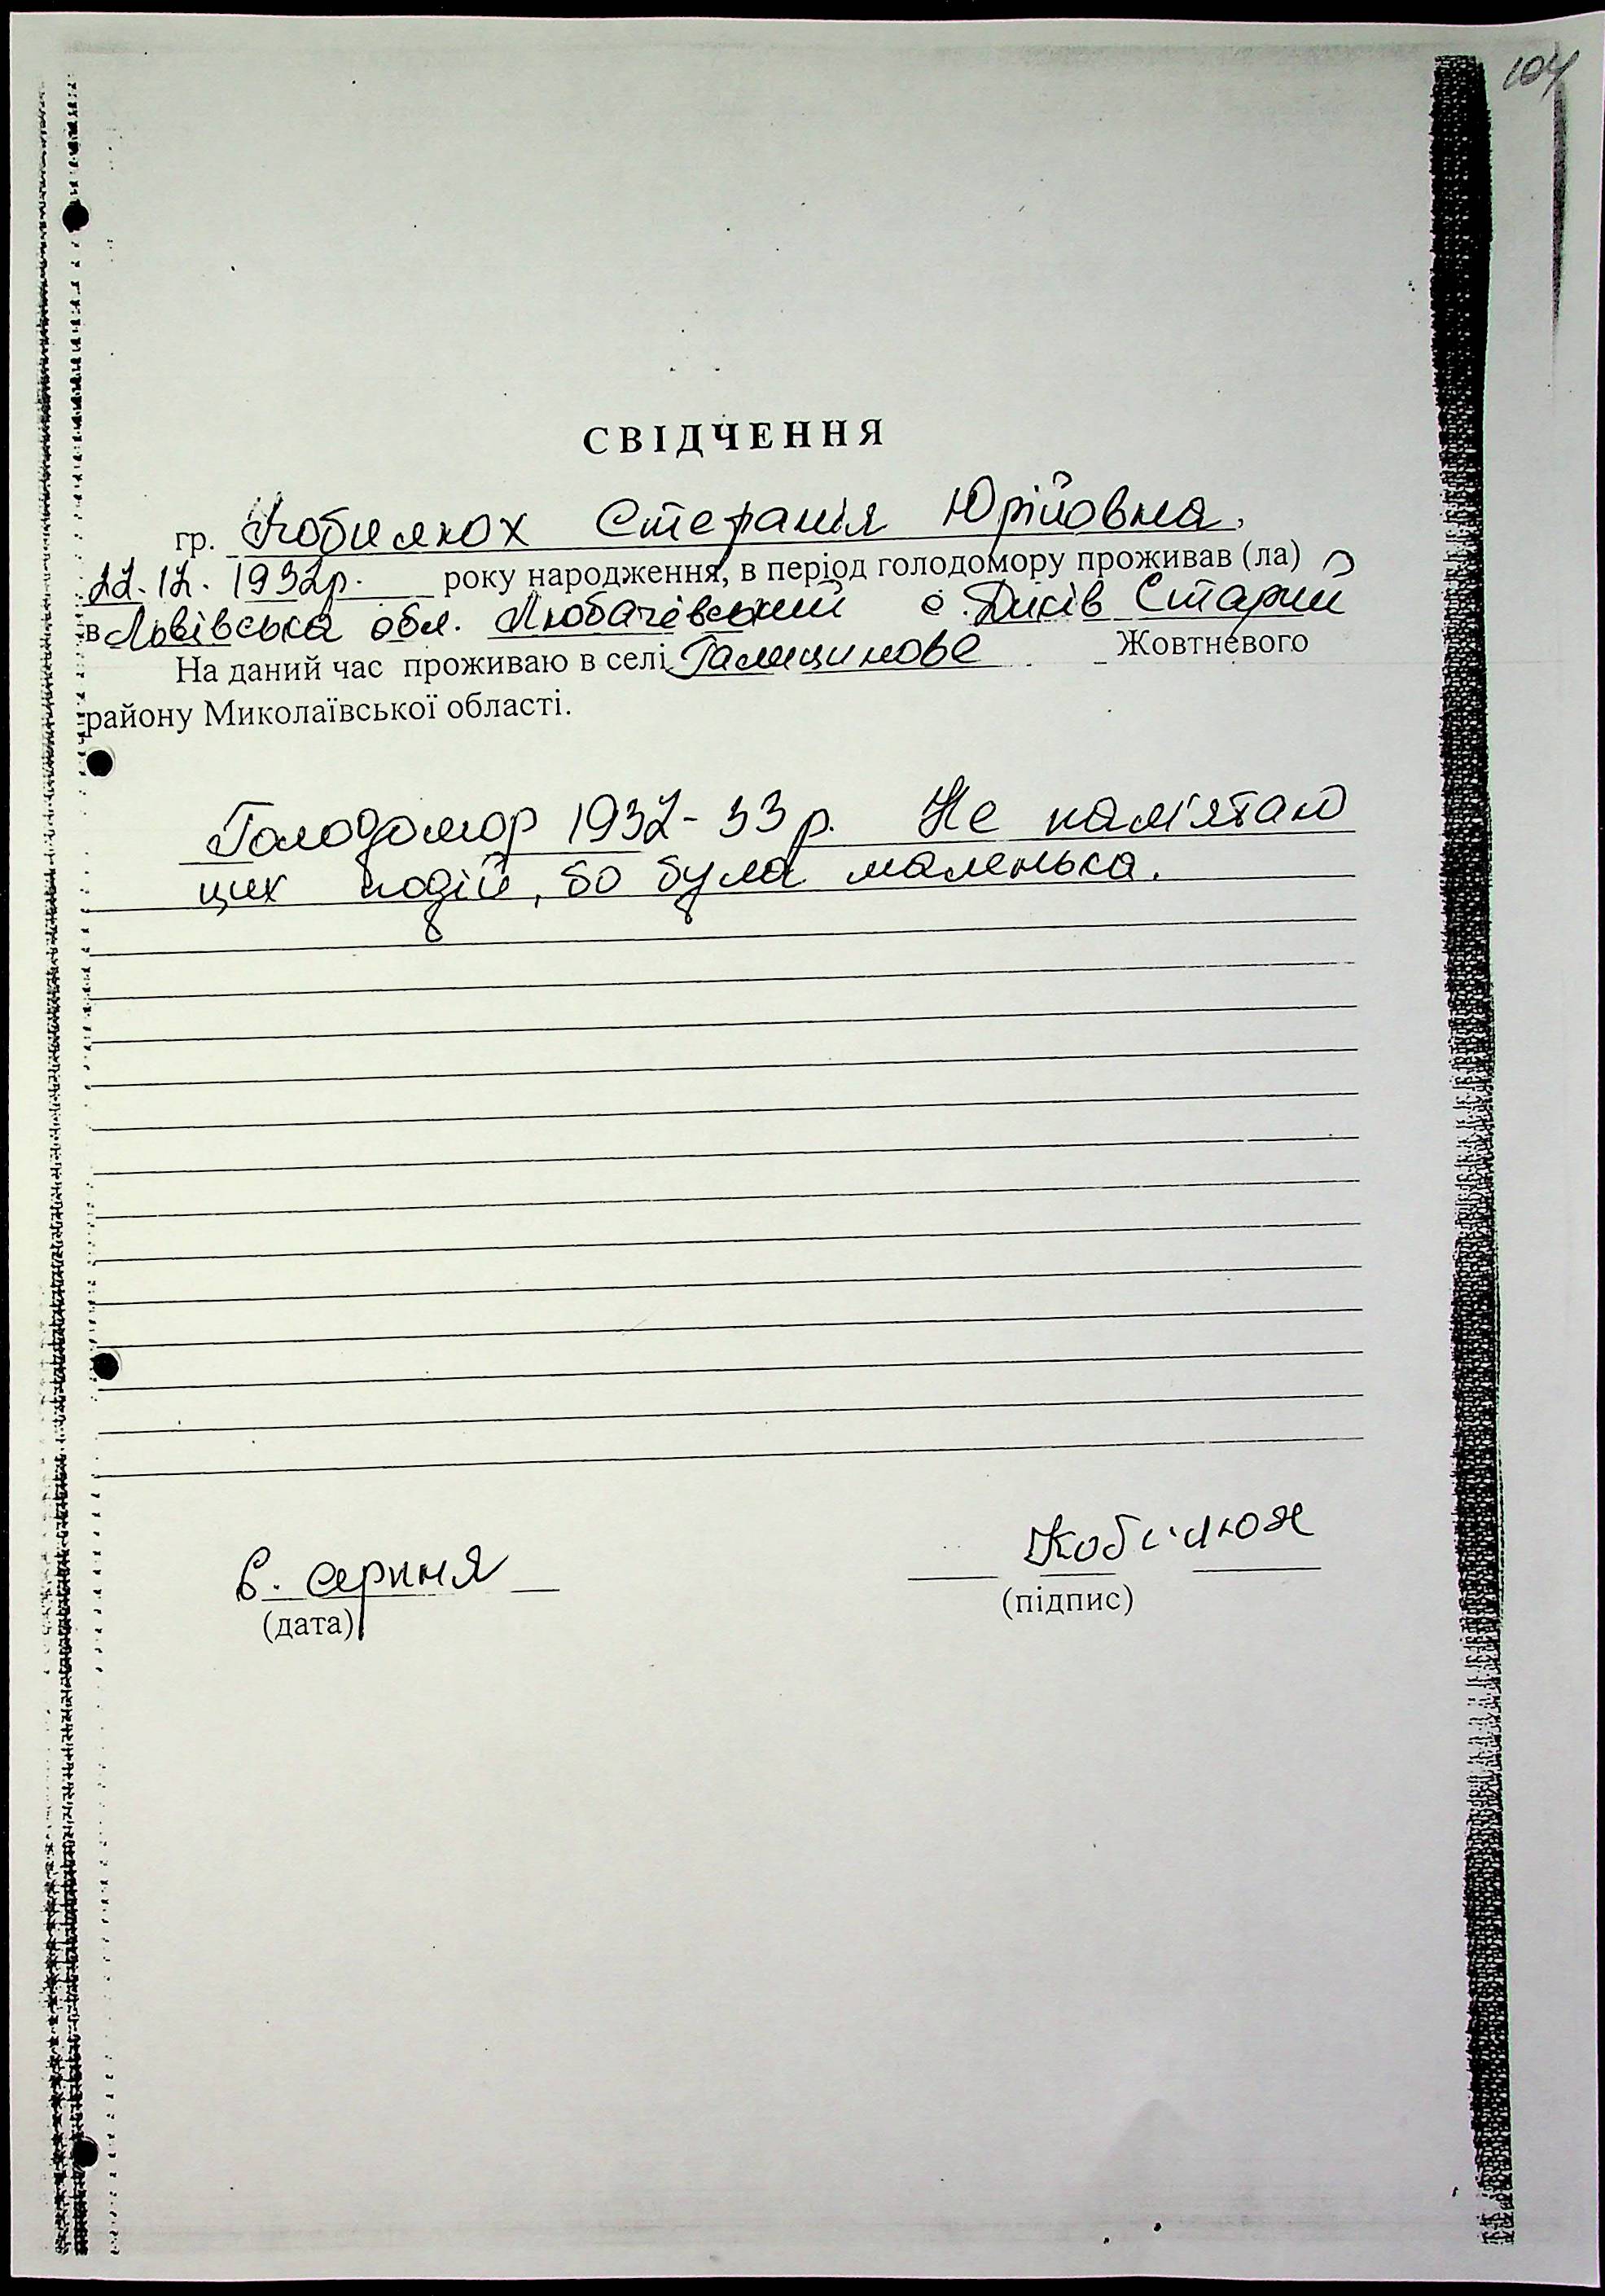 104
СВІДЧЕННЯ
гр. Кобилюх Стефанія Юрійовна,
22.12.1932р. року народження, в період голодомору проживав (ла)
в Львівська обл. Любачівський с. Диків Старий
На даний час проживаю в селі Галицинове Жовтневого
району Миколаївської області.
Голодомор 1932-33 р. Не пам'ятаю
цих подій, бо була маленька.
6. серпня
(дата)
(підпис)